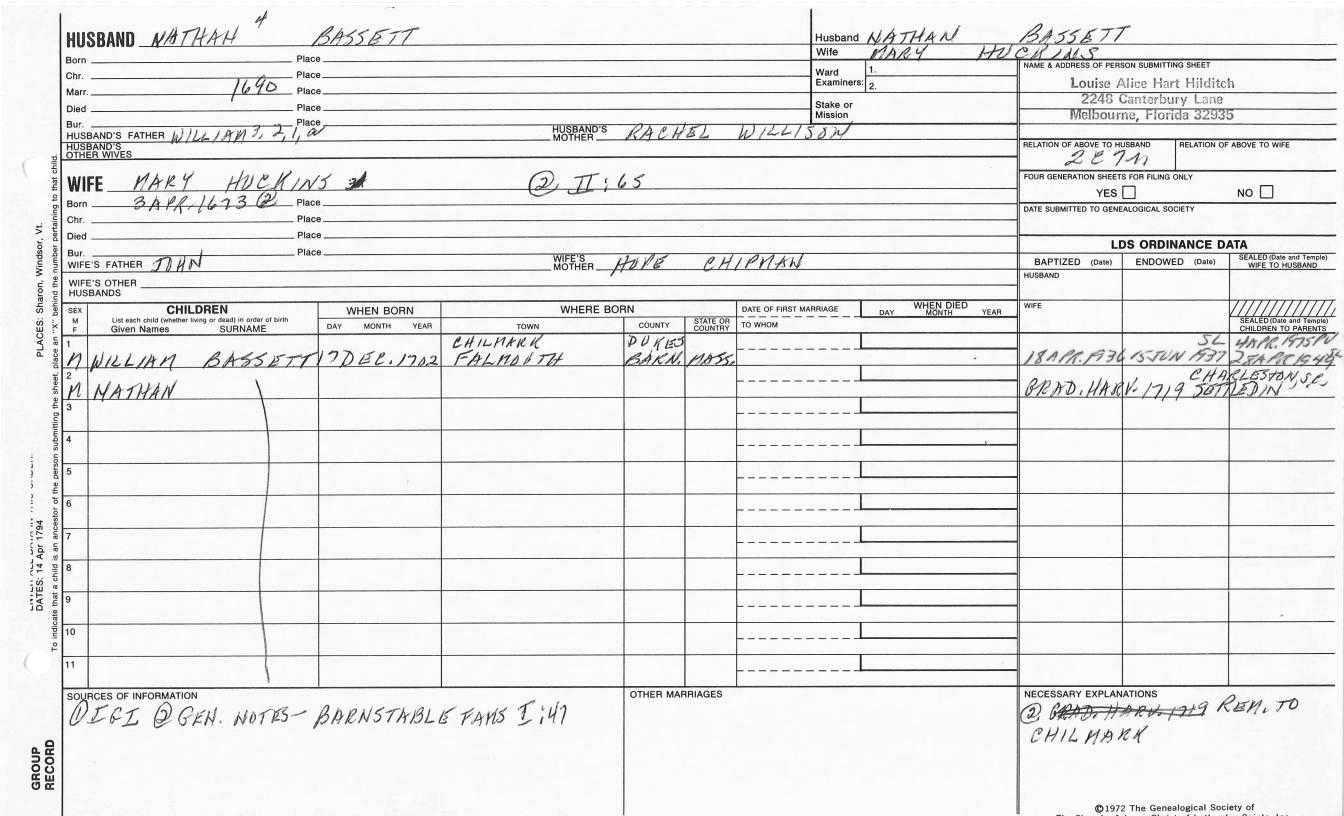 4
HUSBAND NATHAN BASSETT
Born Place
Chr. Place
Marr. 1690 Place
Died Place
Bur. Place
HUSBAND'S FATHER WILLIAM 3, 2, 1, a HUSBAND'S MOTHER RACHEL WILLISON
HUSBAND'S OTHER WIVES
WIFE MARY HUCKINS ② II:65
Born 3 APR. 1673 ② Place
Chr. Place
Died Place
Bur. Place
WIFE'S FATHER JOHN WIFE'S MOTHER HOPE CHIPMAN
WIFE'S OTHER HUSBANDS
Husband NATHAN BASSETT
Wife MARY HUCKINS
Ward Examiners: 1.
2.
Stake or Mission
NAME & ADDRESS OF PERSON SUBMITTING SHEET
Louise Alice Hart Hilditch
2248 Canterbury Lane
Melbourne, Florida 32935
RELATION OF ABOVE TO HUSBAND RELATION OF ABOVE TO WIFE
2C7R
FOUR GENERATION SHEETS FOR FILING ONLY
YES NO
DATE SUBMITTED TO GENEALOGICAL SOCIETY
LDS ORDINANCE DATA
BAPTIZED (Date) ENDOWED (Date) SEALED (Date and Temple) WIFE TO HUSBAND
HUSBAND
WIFE
SEALED (Date and Temple) CHILDREN TO PARENTS
SEX M F CHILDREN WHEN BORN WHERE BORN DATE OF FIRST MARRIAGE WHEN DIED
List each child (whether living or dead) in order of birth
Given Names SURNAME DAY MONTH YEAR TOWN COUNTY STATE OR COUNTRY TO WHOM DAY MONTH YEAR
1 CHILMARK DUKES SL 4 APR. 1975 PV
M WILLIAM BASSETT 17 DEC. 1702 FALMOUTH BARN. MASS. 18 APR. 1936 15 JUN 1937 28 APR 1944 SL
2 CHARLESTON, S.C.
M NATHAN GRAD. HARV. 1719 SETTLED IN
3
4
5
6
7
8
9
10
11
SOURCES OF INFORMATION
① IGI ② GEN. NOTES- BARNSTABLE FAMS I:47
OTHER MARRIAGES
NECESSARY EXPLANATIONS
② GRAD. HARV. 1719 REM. TO
CHILMARK
©1972 The Genealogical Society of
PLACES: Sharon, Windsor, Vt.
DATES: 14 Apr 1794
To indicate that a child is an ancestor of the person submitting the sheet, place an "X" behind the number pertaining to that child.
GROUP RECORD